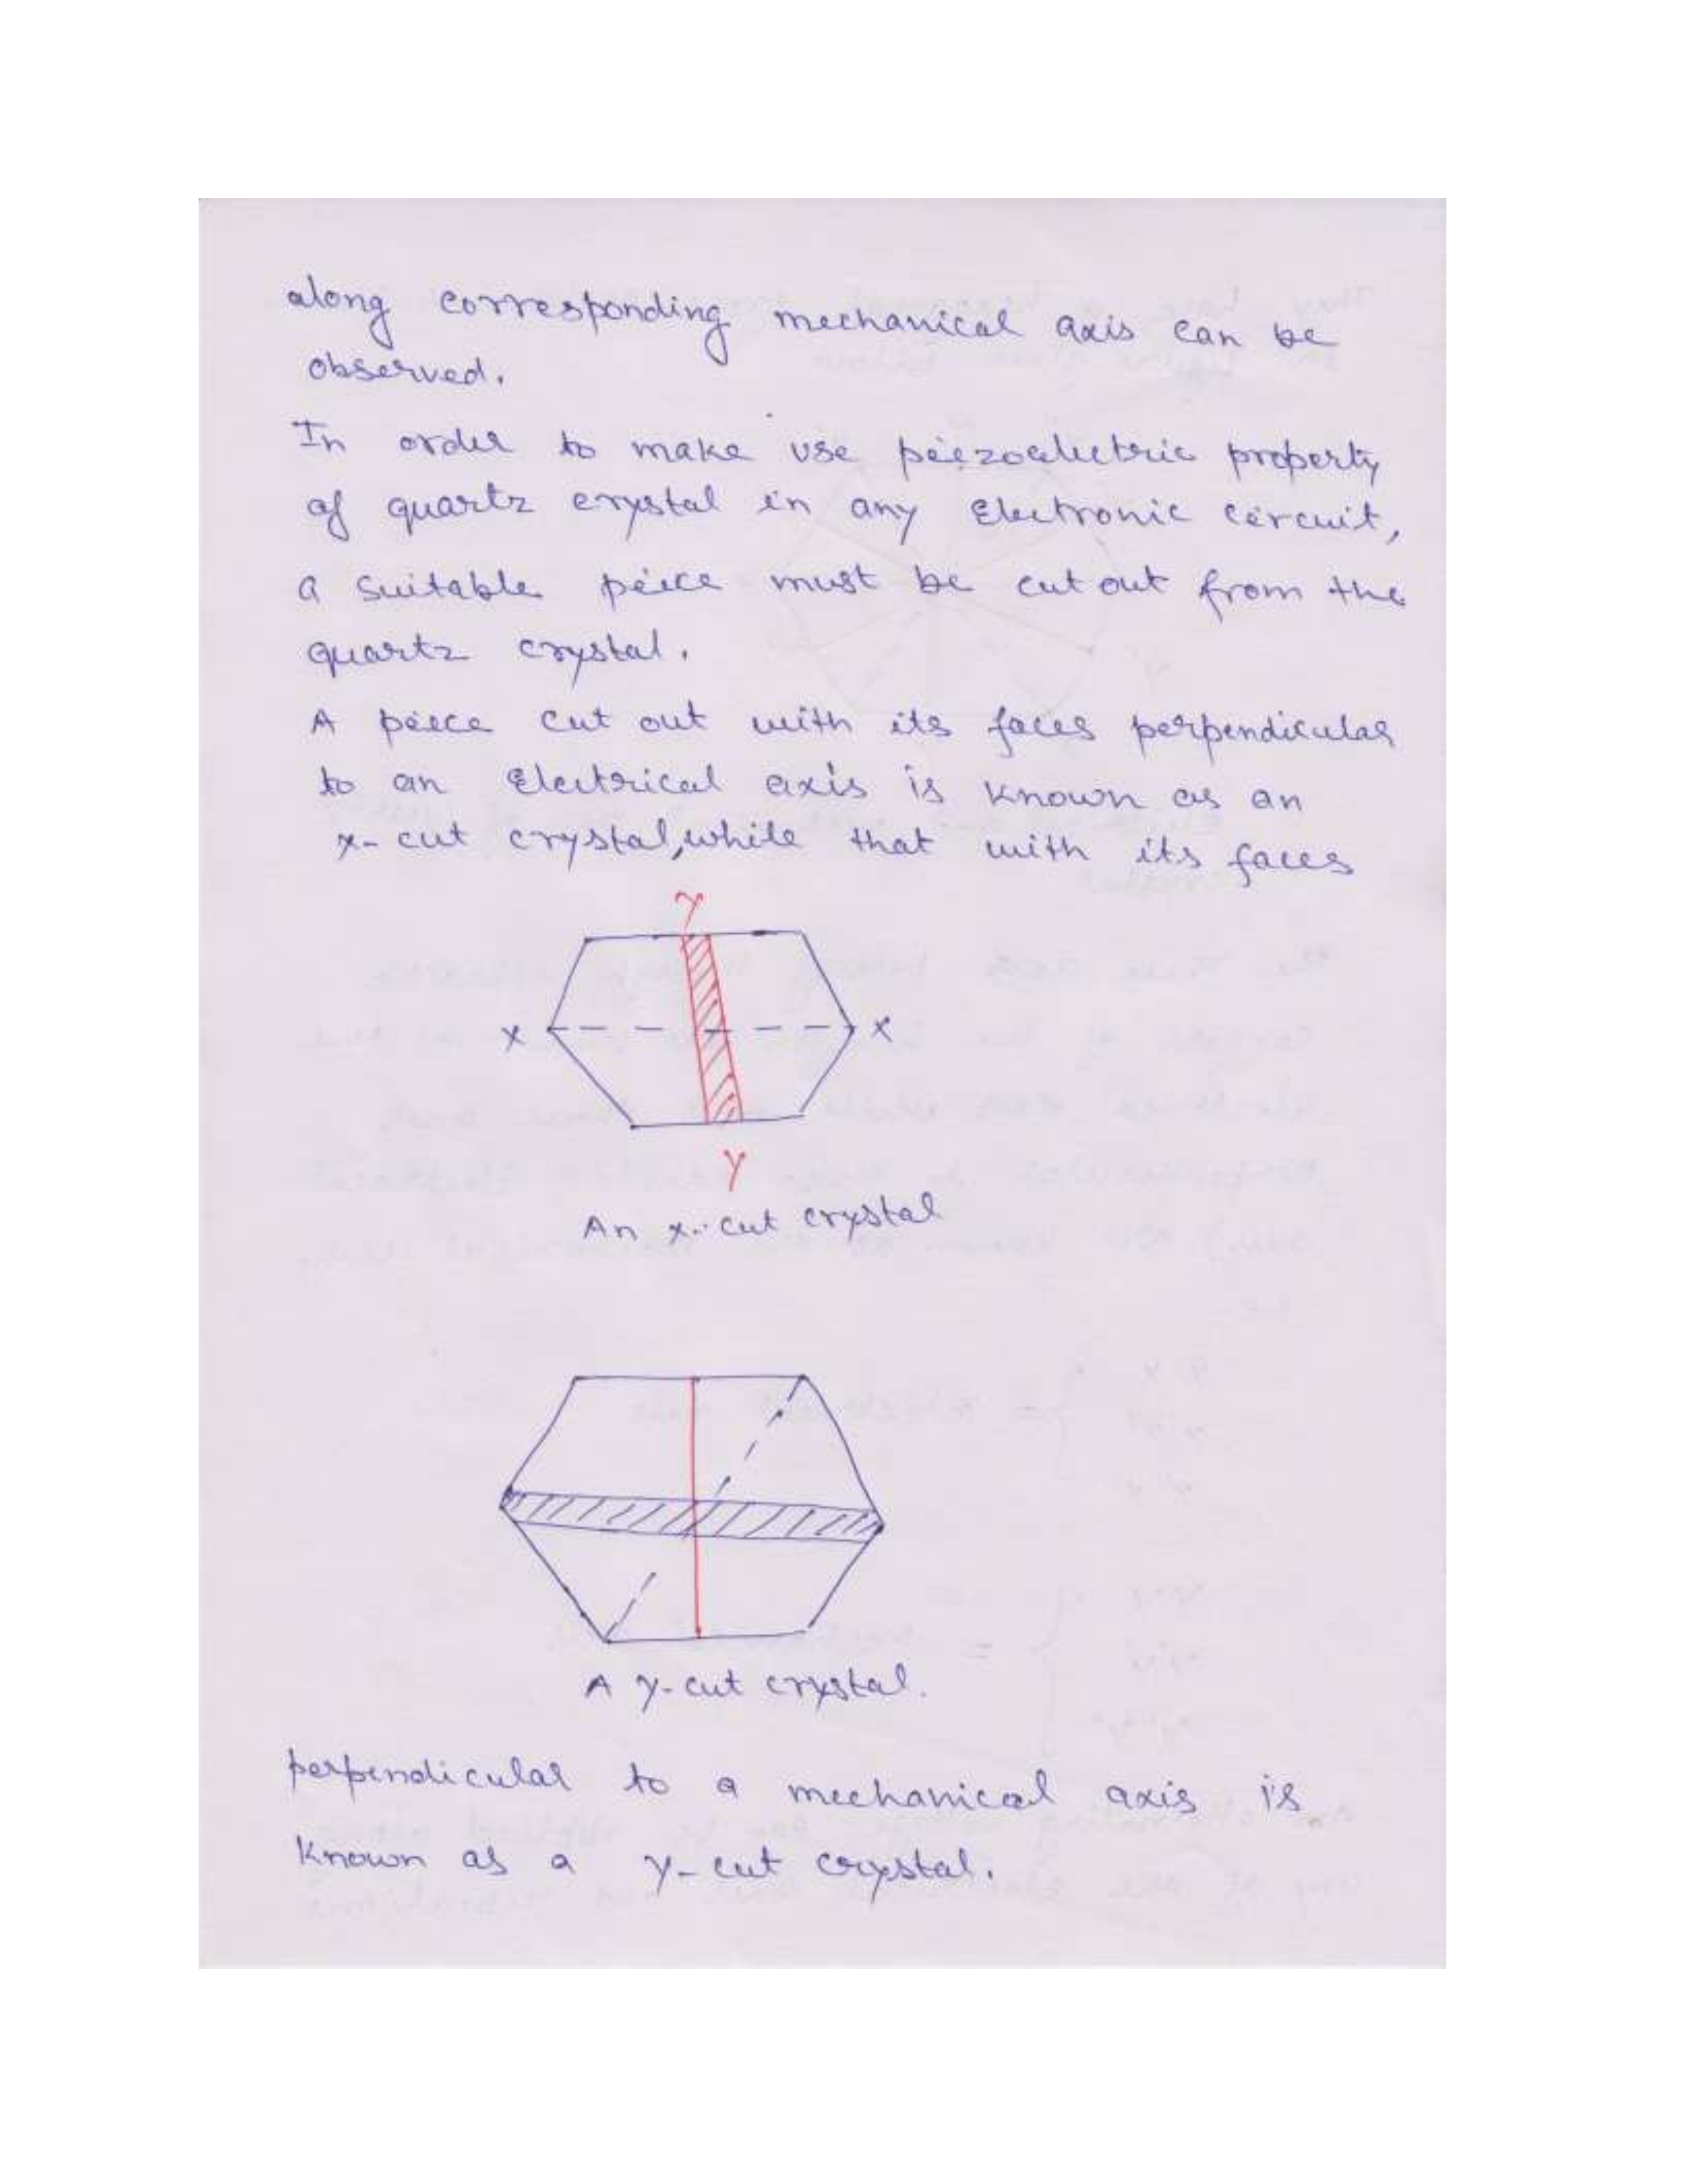 along corresponding mechanical axis can be
observed.
In order to make use peizoelectric property
of quartz crystal in any Electronic circuit,
a suitable peice must be cut out from the
quartz crystal.
A peice cut out with its faces perpendicular
to an Electrical axis is known as an
x-cut crystal, while that with its faces
Y
X X
Y
An x-cut crystal
A y-cut crystal.
perpendicular to a mechanical axis is
known as a y-cut crystal.